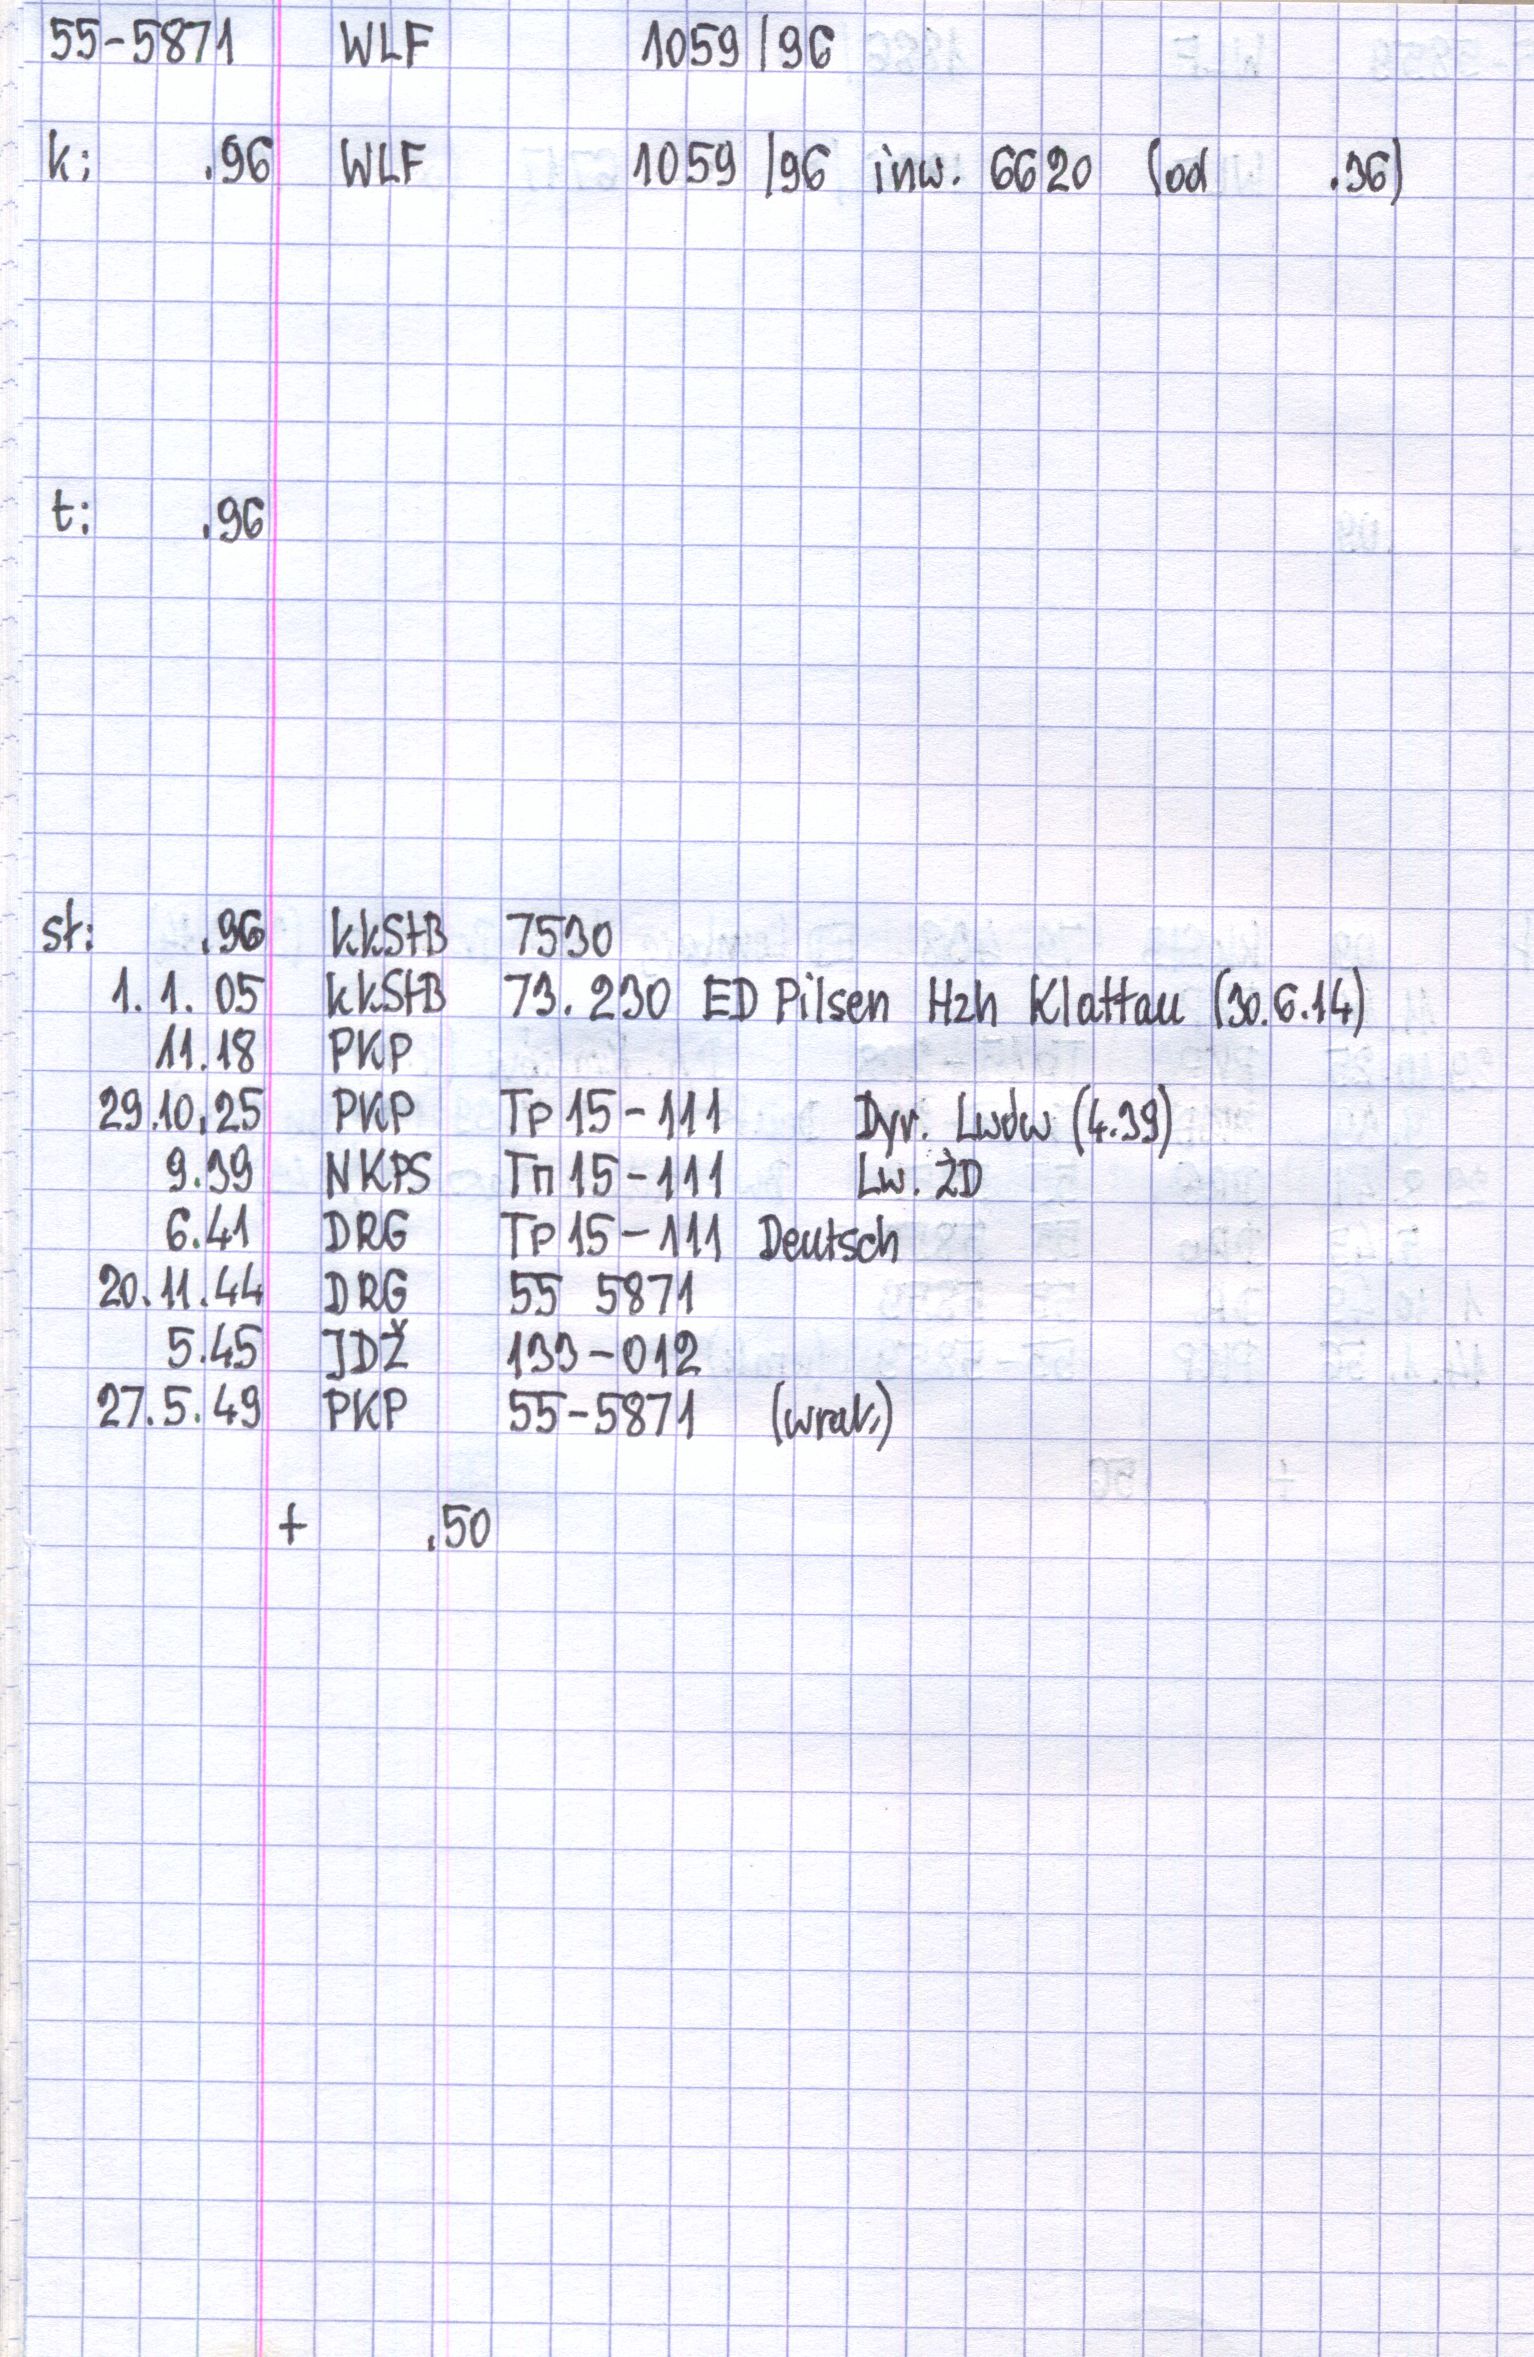 55-5871 WLF 1059/96
k: .96 WLF 1059/96 inw. 6620 (od .36)
t: .96
st: .96 kkStB 7530
1.1.05 kkStB 73.230 ED Pilsen Hzh Klattau (30.6.14)
11.18 PKP
29.10.25 PKP Tp15-111 Dyr. Lwów (4.39)
9.39 NKPS Тп15-111 Lw. ŻD
6.41 DRG Tp15-111 Deutsch
20.11.44 DRG 55 5871
5.45 JDŽ 133-012
27.5.49 PKP 55-5871 (wrak)
+ .50